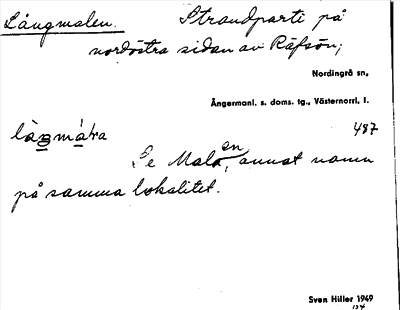 Långmalen. Strandparti på
nordöstra sidan av Räfsön;
Nordingrå sn,
Ångermanl. s. doms. tg., Västernorrl. l.
487
Se Malen, annat namn
på samma lokalitet.
Sven Hiller 1949